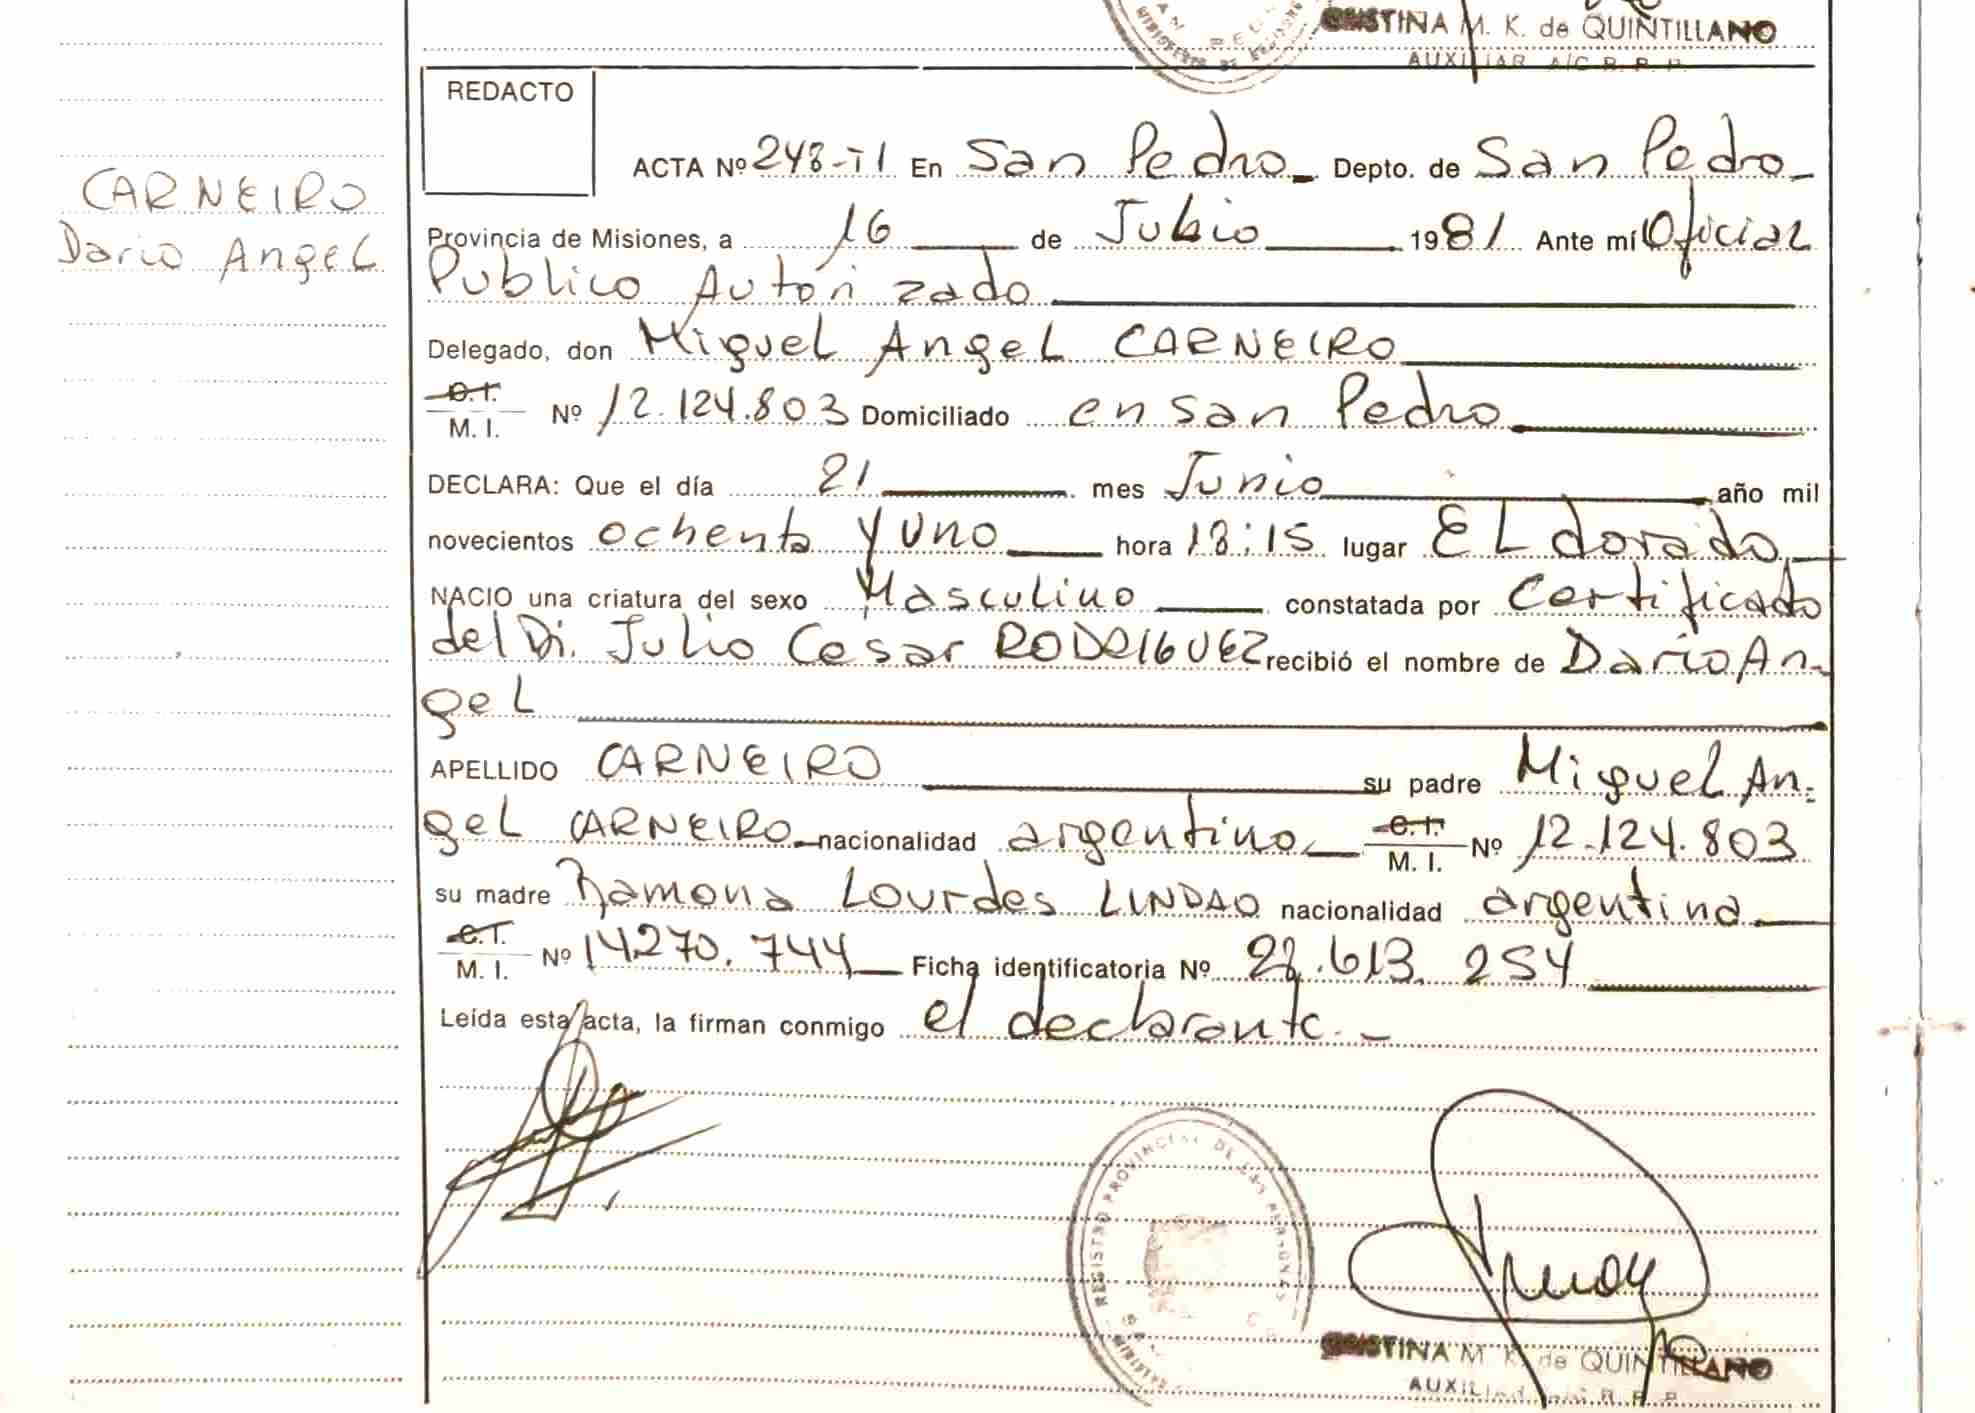 CRISTINA M. K. de QUINTILLANO
AUXILIAR A/C R. P. P.
REDACTO
ACTA Nº 248-T1 En San Pedro Depto. de San Pedro
CARNEIRO
Dario Angel
Provincia de Misiones, a 16 de Julio 1981 Ante mí Oficial
Publico Autorizado
Delegado, don Miguel Angel CARNEIRO
C.I.
M. I. Nº 12.124.803 Domiciliado en San Pedro
DECLARA: Que el día 21 mes Junio año mil
novecientos ochenta y uno hora 18:15 lugar ELdorado
NACIO una criatura del sexo Masculino constatada por Certificado
del Dr. Julio Cesar RODRIGUEZ recibió el nombre de Dario An-
gel
APELLIDO CARNEIRO su padre Miguel An-
gel CARNEIRO nacionalidad argentino C.I.
M. I. Nº 12.124.803
su madre Ramona Lourdes LINDAO nacionalidad argentina
C.I.
M. I. Nº 14270.744 Ficha identificatoria Nº 28.613.254
Leída esta acta, la firman conmigo el declarante.-
REGISTRO PROVINCIAL DE LAS PERSONAS
CRISTINA M. K. de QUINTILLANO
AUXILIAR A/C R. P. P.